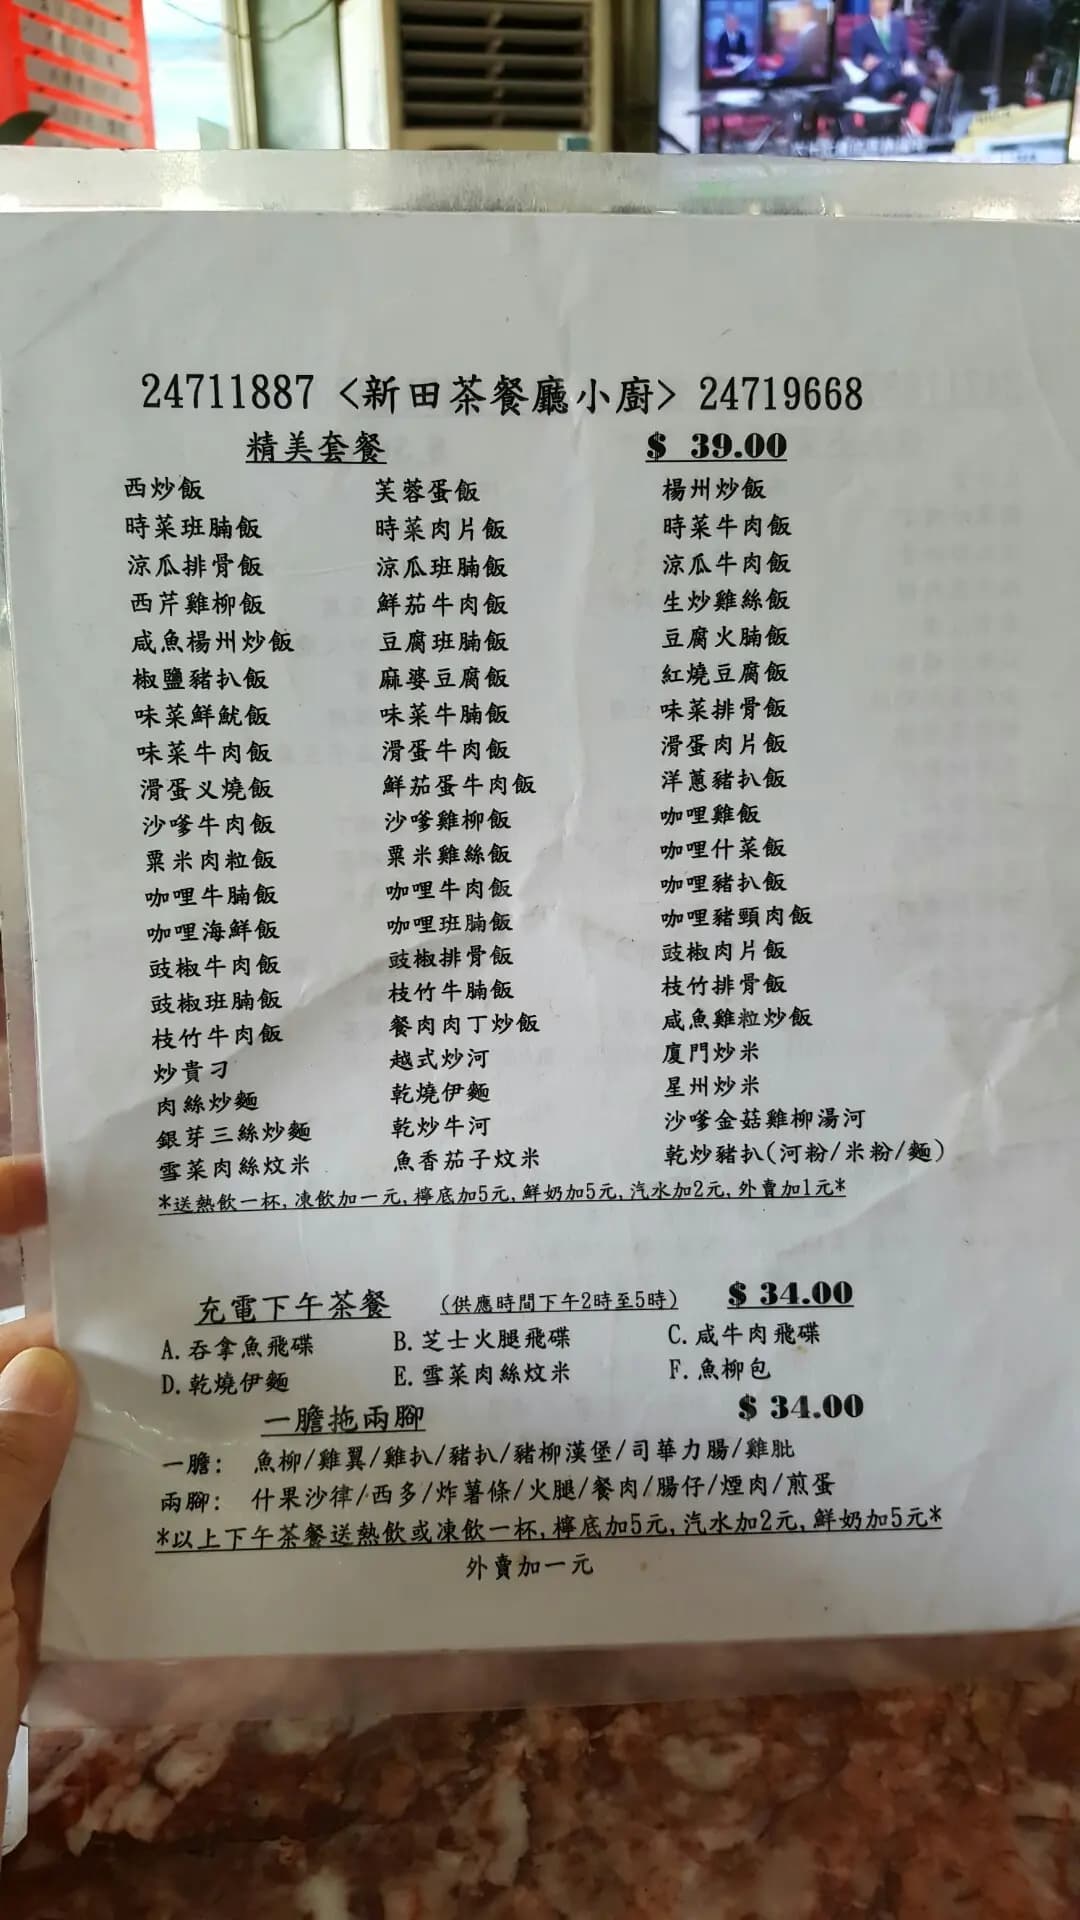 24711887 <新田茶餐廳小廚> 24719668
精美套餐 $ 39.00
西炒飯 芙蓉蛋飯 楊州炒飯
時菜班腩飯 時菜肉片飯 時菜牛肉飯
涼瓜排骨飯 涼瓜班腩飯 涼瓜牛肉飯
西芹雞柳飯 鮮茄牛肉飯 生炒雞絲飯
咸魚楊州炒飯 豆腐班腩飯 豆腐火腩飯
椒鹽豬扒飯 麻婆豆腐飯 紅燒豆腐飯
味菜鮮魷飯 味菜牛腩飯 味菜排骨飯
味菜牛肉飯 滑蛋牛肉飯 滑蛋肉片飯
滑蛋义燒飯 鮮茄蛋牛肉飯 洋蔥豬扒飯
沙嗲牛肉飯 沙嗲雞柳飯 咖哩雞飯
粟米肉粒飯 粟米雞絲飯 咖哩什菜飯
咖哩牛腩飯 咖哩牛肉飯 咖哩豬扒飯
咖哩海鮮飯 咖哩班腩飯 咖哩豬頸肉飯
豉椒牛肉飯 豉椒排骨飯 豉椒肉片飯
豉椒班腩飯 枝竹牛腩飯 枝竹排骨飯
枝竹牛肉飯 餐肉肉丁炒飯 咸魚雞粒炒飯
炒貴刁 越式炒河 廈門炒米
肉絲炒麵 乾燒伊麵 星州炒米
銀芽三絲炒麵 乾炒牛河 沙嗲金菇雞柳湯河
雪菜肉絲炆米 魚香茄子炆米 乾炒豬扒(河粉/米粉/麵)
*送熱飲一杯,凍飲加一元,檸底加5元,鮮奶加5元,汽水加2元,外賣加1元*
充電下午茶餐 (供應時間下午2時至5時) $ 34.00
A.吞拿魚飛碟 B.芝士火腿飛碟 C.咸牛肉飛碟
D.乾燒伊麵 E.雪菜肉絲炆米 F.魚柳包
一膽拖兩腳 $ 34.00
一膽: 魚柳/雞翼/雞扒/豬扒/豬柳漢堡/司華力腸/雞肶
兩腳: 什果沙律/西多/炸薯條/火腿/餐肉/腸仔/煙肉/煎蛋
*以上下午茶餐送熱飲或凍飲一杯,檸底加5元,汽水加2元,鮮奶加5元*
外賣加一元